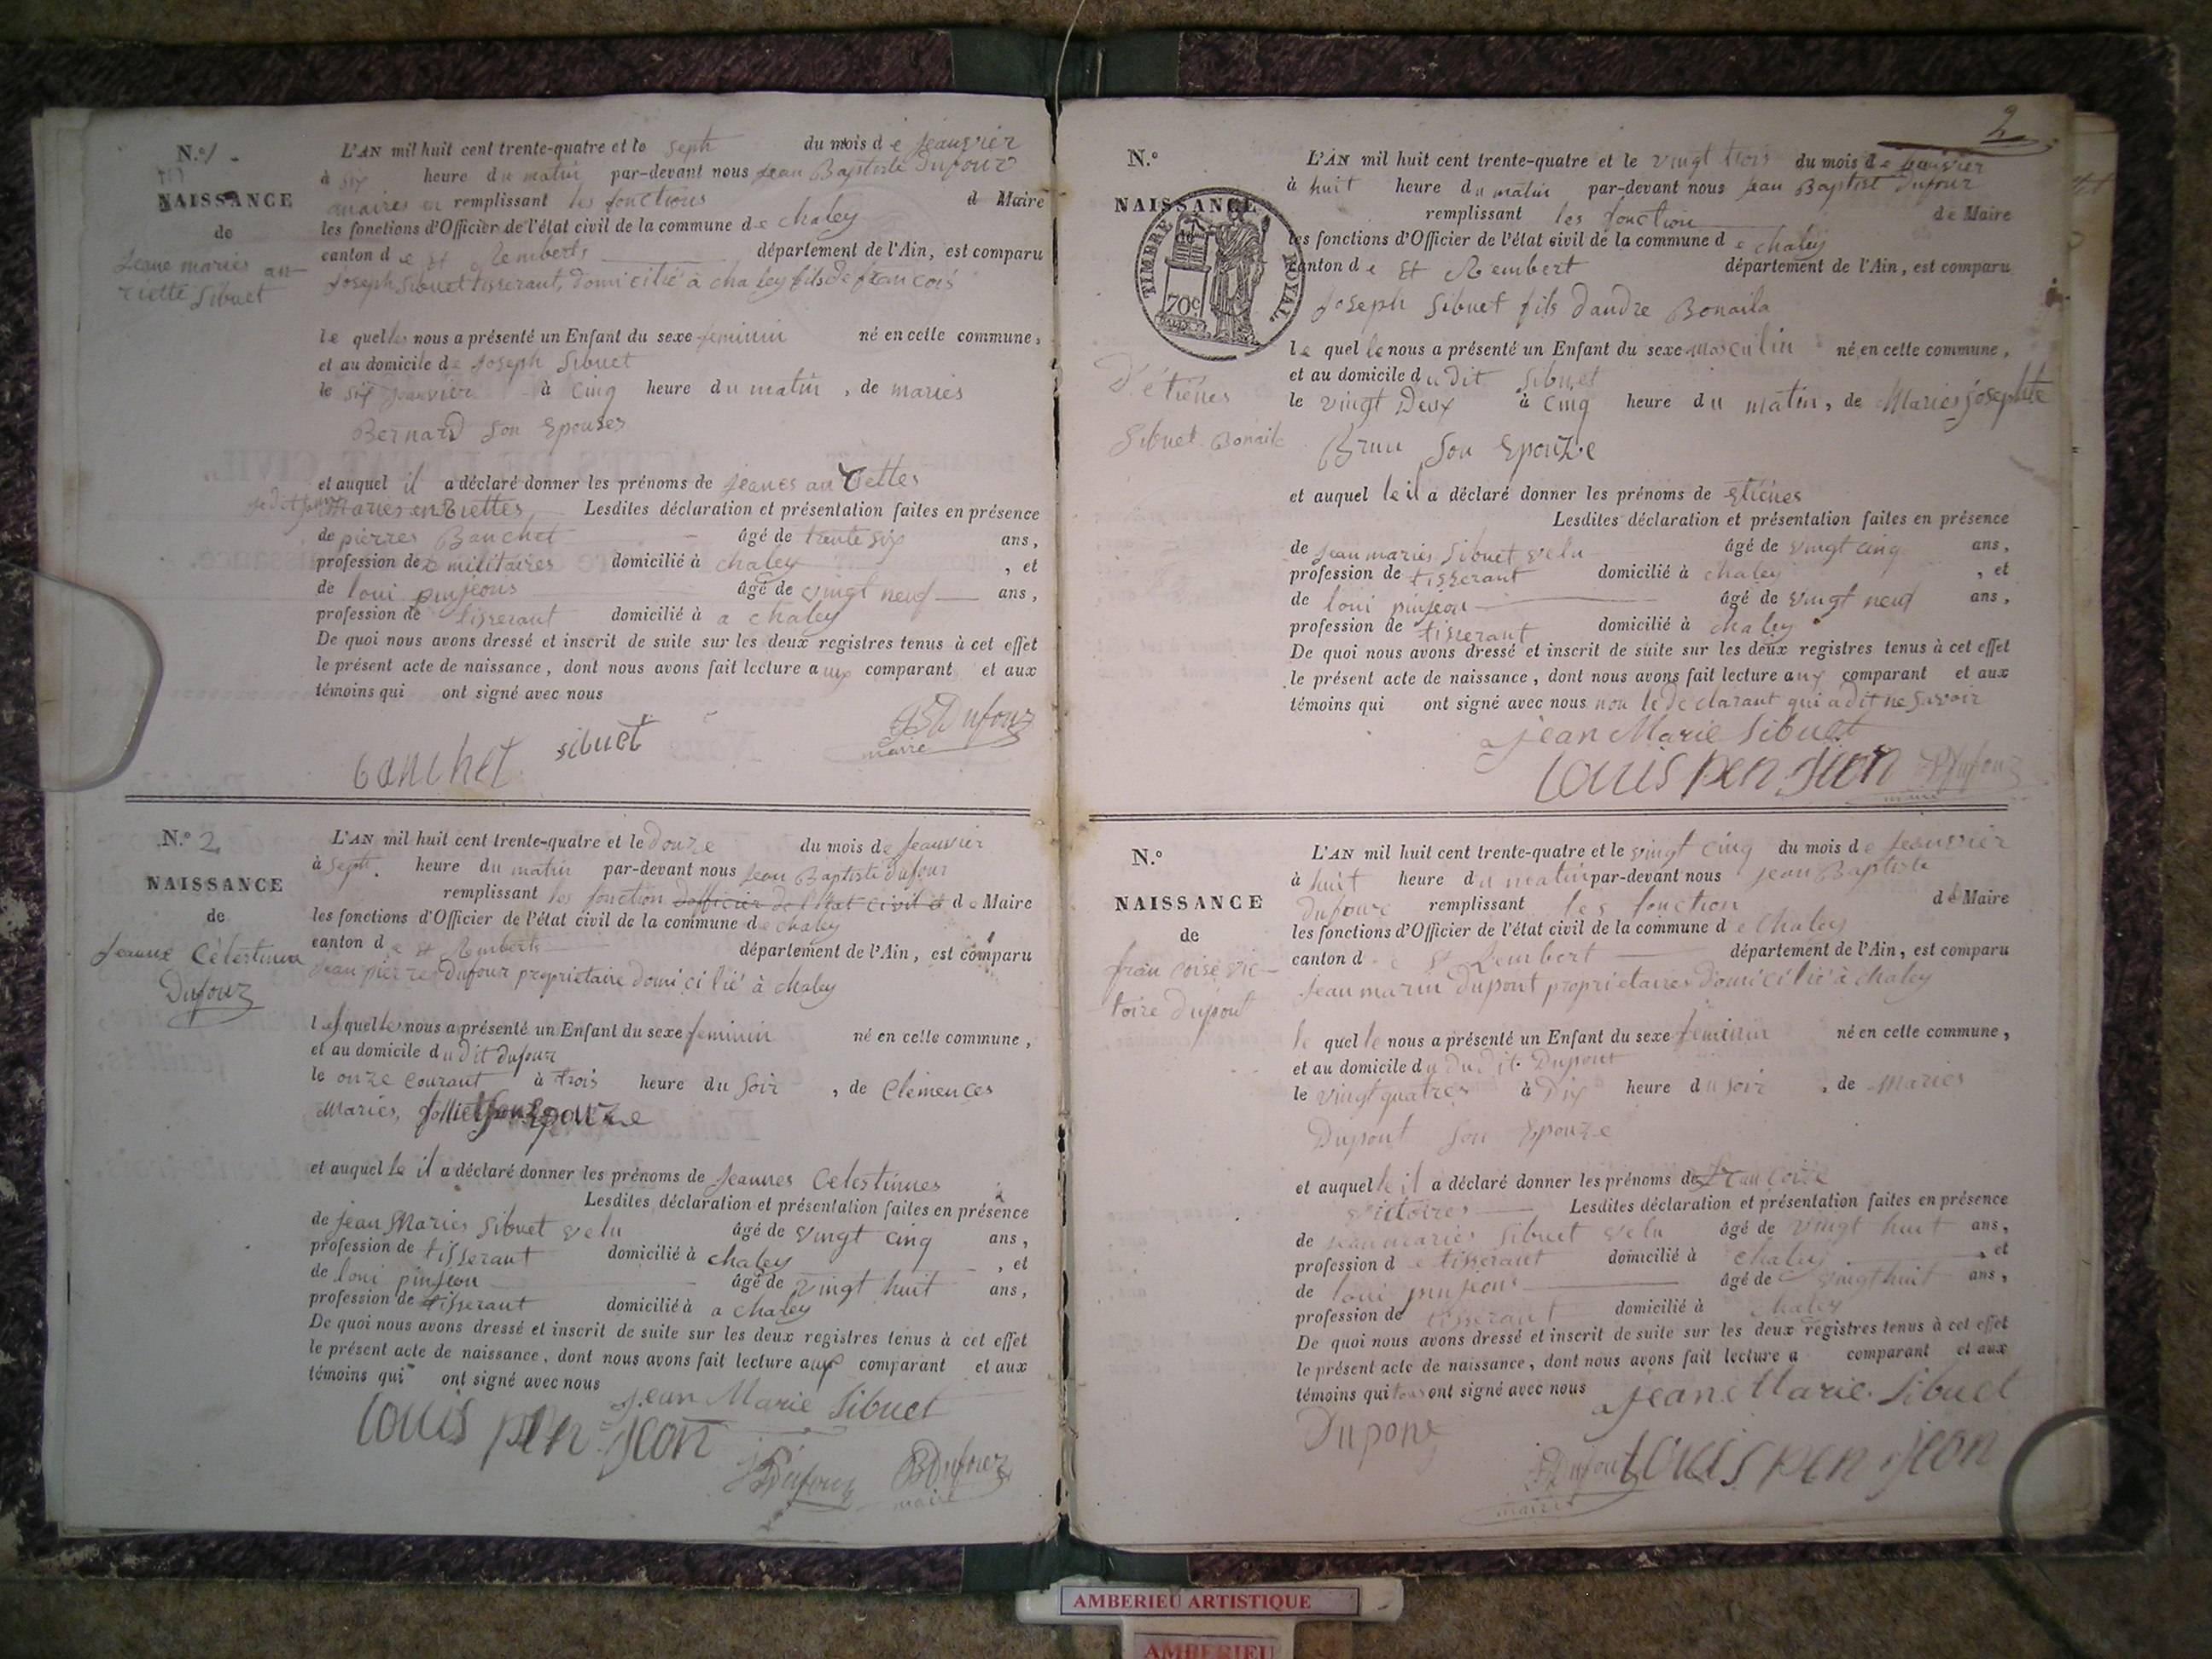 N.º 1
NAISSANCE
de
Jeane maries an
riette Sibuet
L'AN mil huit cent trente-quatre et le seph du mois de Jeanvier
à six heure du matin par-devant nous Jean Baptiste Dufour
remplissant les fonctions d Maire
les fonctions d'Officier de l'état civil de la commune de chaley
canton de St Remberts département de l'Ain, est comparu
Joseph Sibuet tisserant, domicilié à chaley fils de francois
le quel nous a présenté un Enfant du sexe feminin né en celle commune,
et au domicile de Joseph Sibuet
le six Jeanvier à cinq heure du matin, de maries
Bernard Son Epouses
et auquel il a déclaré donner les prénoms de Jeanes
Maries Lesdites déclaration et présentation faites en présence
de pierres Banchet âgé de trente six ans,
profession de militaires domicilié à chaley, et
de loui pinjeons âgé de vingt neuf ans,
profession de tisserant domicilié à a chaley
De quoi nous avons dressé et inscrit de suite sur les deux registres tenus à cet effet
le présent acte de naissance, dont nous avons fait lecture aux comparant et aux
témoins qui ont signé avec nous
Dufour
banchet sibuet maire
N.º 2
NAISSANCE
de
Jeanne Célestinne
Dufour
L'AN mil huit cent trente-quatre et le douze du mois de Jeanvier
à Seph. heure du matin par-devant nous Jean Baptiste dufour
remplissant les fonction dofficier de l'Etat civil et de Maire
les fonctions d'Officier de l'état civil de la commune de chaley
canton de St Remberts département de l'Ain, est comparu
Jean pierre Dufour proprietaire domicilié à chaley
nous a présenté un Enfant du sexe feminin né en celle commune,
et au domicile du dit dufour
le onze courant à trois heure du soir, de Clemences
Maries, Epouze
et auquel le il a déclaré donner les prénoms de Jeannes Celestinnes
Lesdites déclaration et présentation faites en présence
de Jean Maries Sibuet velu âgé de vingt cinq ans,
profession de tisserant domicilié à chaley, et
de loui pinjeon âgé de vingt huit ans,
profession de tisserant domicilié à a chaley
De quoi nous avons dressé et inscrit de suite sur les deux registres tenus à cet effet
le présent acte de naissance, dont nous avons fait lecture aux comparant et aux
témoins qui ont signé avec nous
jean Marie Sibuet
louis pen jeon
Dufour Dufour
maire
2
N.º
NAISSANCE
TIMBRE ROYAL
70c
D'étienes
Sibuet Bonaila
L'AN mil huit cent trente-quatre et le vingt trois du mois de Jeanvier
à huit heure du matin par-devant nous Jean Baptist Dufour
remplissant les fonction de Maire
les fonctions d'Officier de l'état civil de la commune de chaley
canton de St Rembert département de l'Ain, est comparu
Joseph Sibuet fils dandre Bonaila
le quel le nous a présenté un Enfant du sexe masculin né en celle commune,
et au domicile du dit Sibuet
le vingt Deux à cinq heure du matin, de Maries josephte
Brun Son Epouze
et auquel le il a déclaré donner les prénoms de Etienes
Lesdites déclaration et présentation faites en présence
de Jean maries Sibuet velu âgé de vingt cinq ans,
profession de tisserant domicilié à chaley, et
de loui pinjeon âgé de vingt neuf ans,
profession de tisserant domicilié à chaley
De quoi nous avons dressé et inscrit de suite sur les deux registres tenus à cet effet
le présent acte de naissance, dont nous avons fait lecture aux comparant et aux
témoins qui ont signé avec nous non le declarant qui a dit ne Savoir
jean Marie Sibuet
louis pen jeon Dufour
maire
N.º
NAISSANCE
de
fran coise vic-
toire Dupont
L'AN mil huit cent trente-quatre et le vingt cinq du mois de Jeanvier
à huit heure du matin par-devant nous jean Baptiste
Dufour remplissant les fonction de Maire
les fonctions d'Officier de l'état civil de la commune de Chaley
canton de St Rembert département de l'Ain, est comparu
Jean marin Dupont proprietaires Domicilié à chaley
le quel le nous a présenté un Enfant du sexe feminin né en celle commune,
et au domicile du du dit Dupont
le vingt quatres à Dix heure du soir, de Maries
Dupont Son Epouze
et auquel le il a déclaré donner les prénoms de fran coise
victoires Lesdites déclaration et présentation faites en présence
de jean maries Sibuet velu âgé de vingt huit ans,
profession de tisserant domicilié à chaley, et
de loui pinjeons âgé de vingt huit ans,
profession de tisserant domicilié à chaley
De quoi nous avons dressé et inscrit de suite sur les deux registres tenus à cet effet
le présent acte de naissance, dont nous avons fait lecture a comparant et aux
témoins qui tous ont signé avec nous jean Marie Sibuet
Dupont
Dufour louis pen jeon
maire
AMBERIEU ARTISTIQUE
AMBERIEU